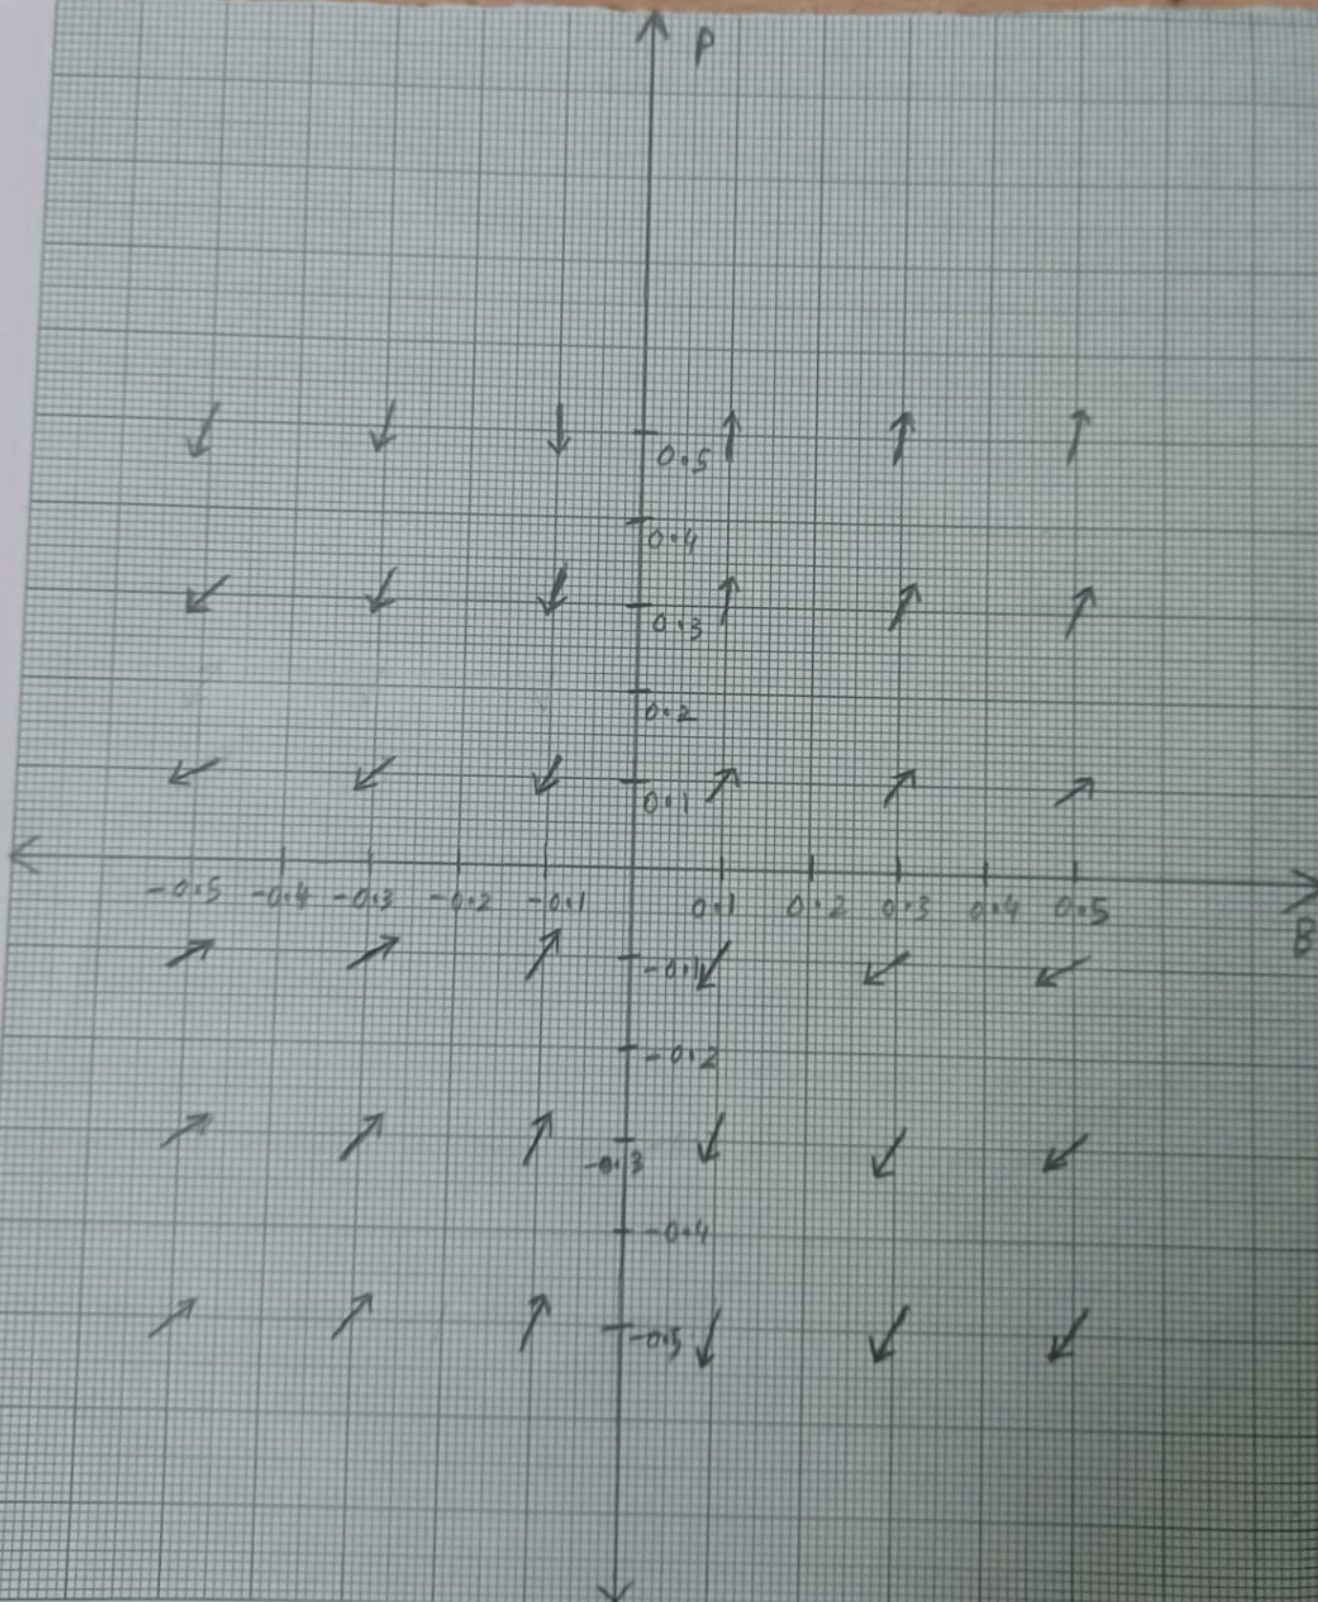 P
0.5
0.4
0.3
0.2
0.1
-0.5 -0.4 -0.3 -0.2 -0.1 0.1 0.2 0.3 0.4 0.5
B
-0.1
-0.2
-0.3
-0.4
-0.5